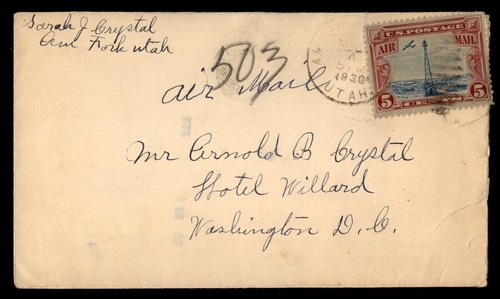 Sarah J Crystal
Am Fork Utah
503
U.S. POSTAGE
AIR MAIL
5 CENTS 5
1930
UTAH
Air Mail
Mr Arnold B Crystal
Hotel Willard
Washington D.C.